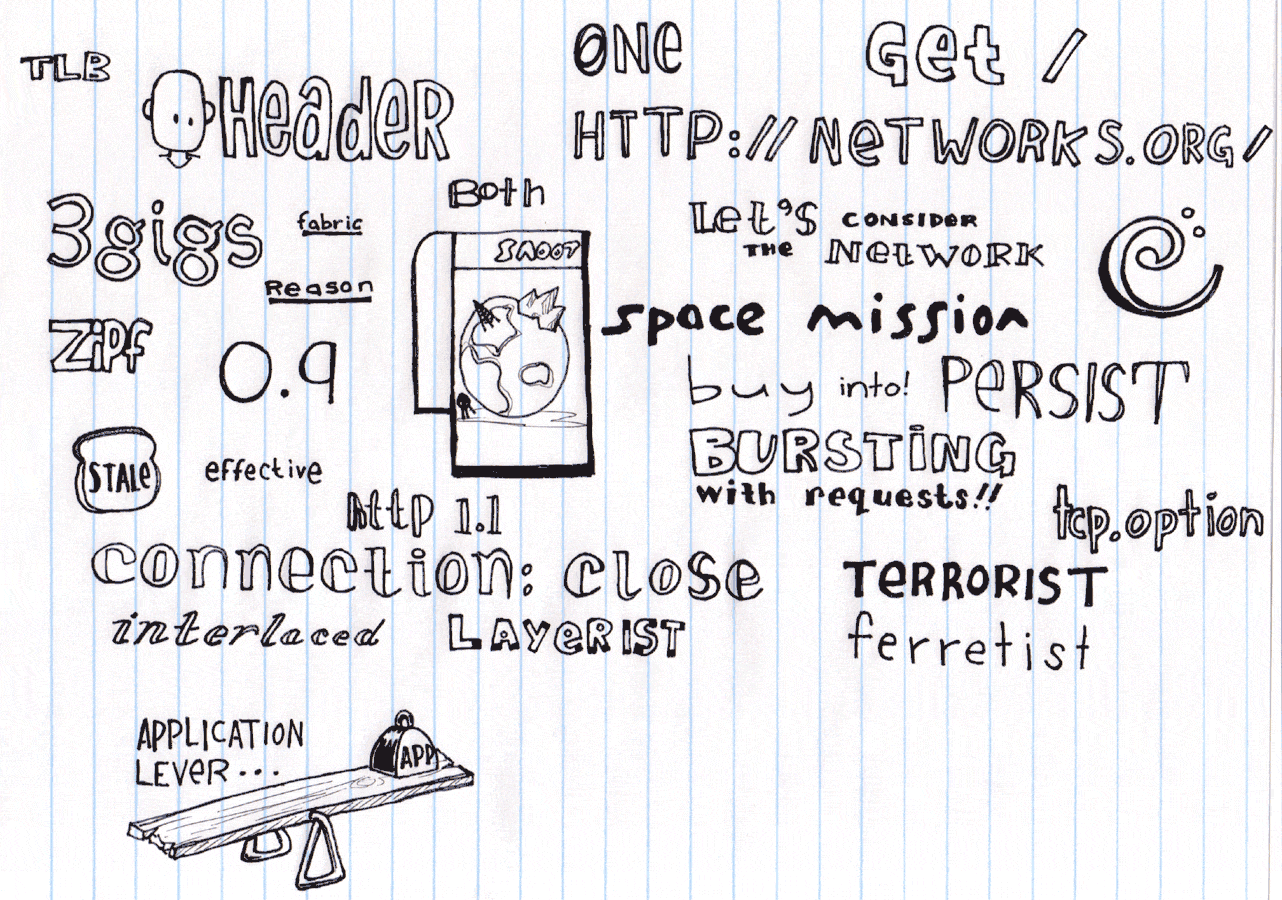 TLB
HeadeR
ONe
Get /
HTTP://NeTWORKS.ORG/
3gigs
fabric
Reason
Both
SNOOT
Let's CONSIDER
THE NetWORK
space mission
ZiPf
0.9
buy into! PeRSIST
BURSTiNG
with requests!!
STALe
effective
http 1.1
tcp.option
connection: close
TeRRORIST
interlaced
LAYeRIST
ferretist
APPLICATION
LEVeR...
APP